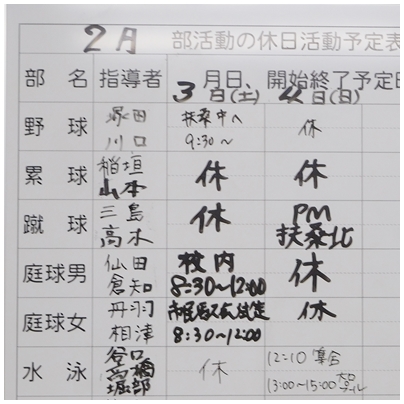 2月 部活動の休日活動予定表
部 名 指導者 月日、開始終了予定
3日(土) 4日(日)
野 球 塚田 川口 扶桑中へ 9:30～ 休
累 球 稲垣 山本 休 休
蹴 球 三島 高木 休 PM 扶桑北
庭球男 仙田 倉知 校内 8:30～12:00 休
庭球女 丹羽 相津 8:30～12:00 休
水 泳 谷口 高橋 堀部 休 12:10 集合 13:00～15:00 大口プール